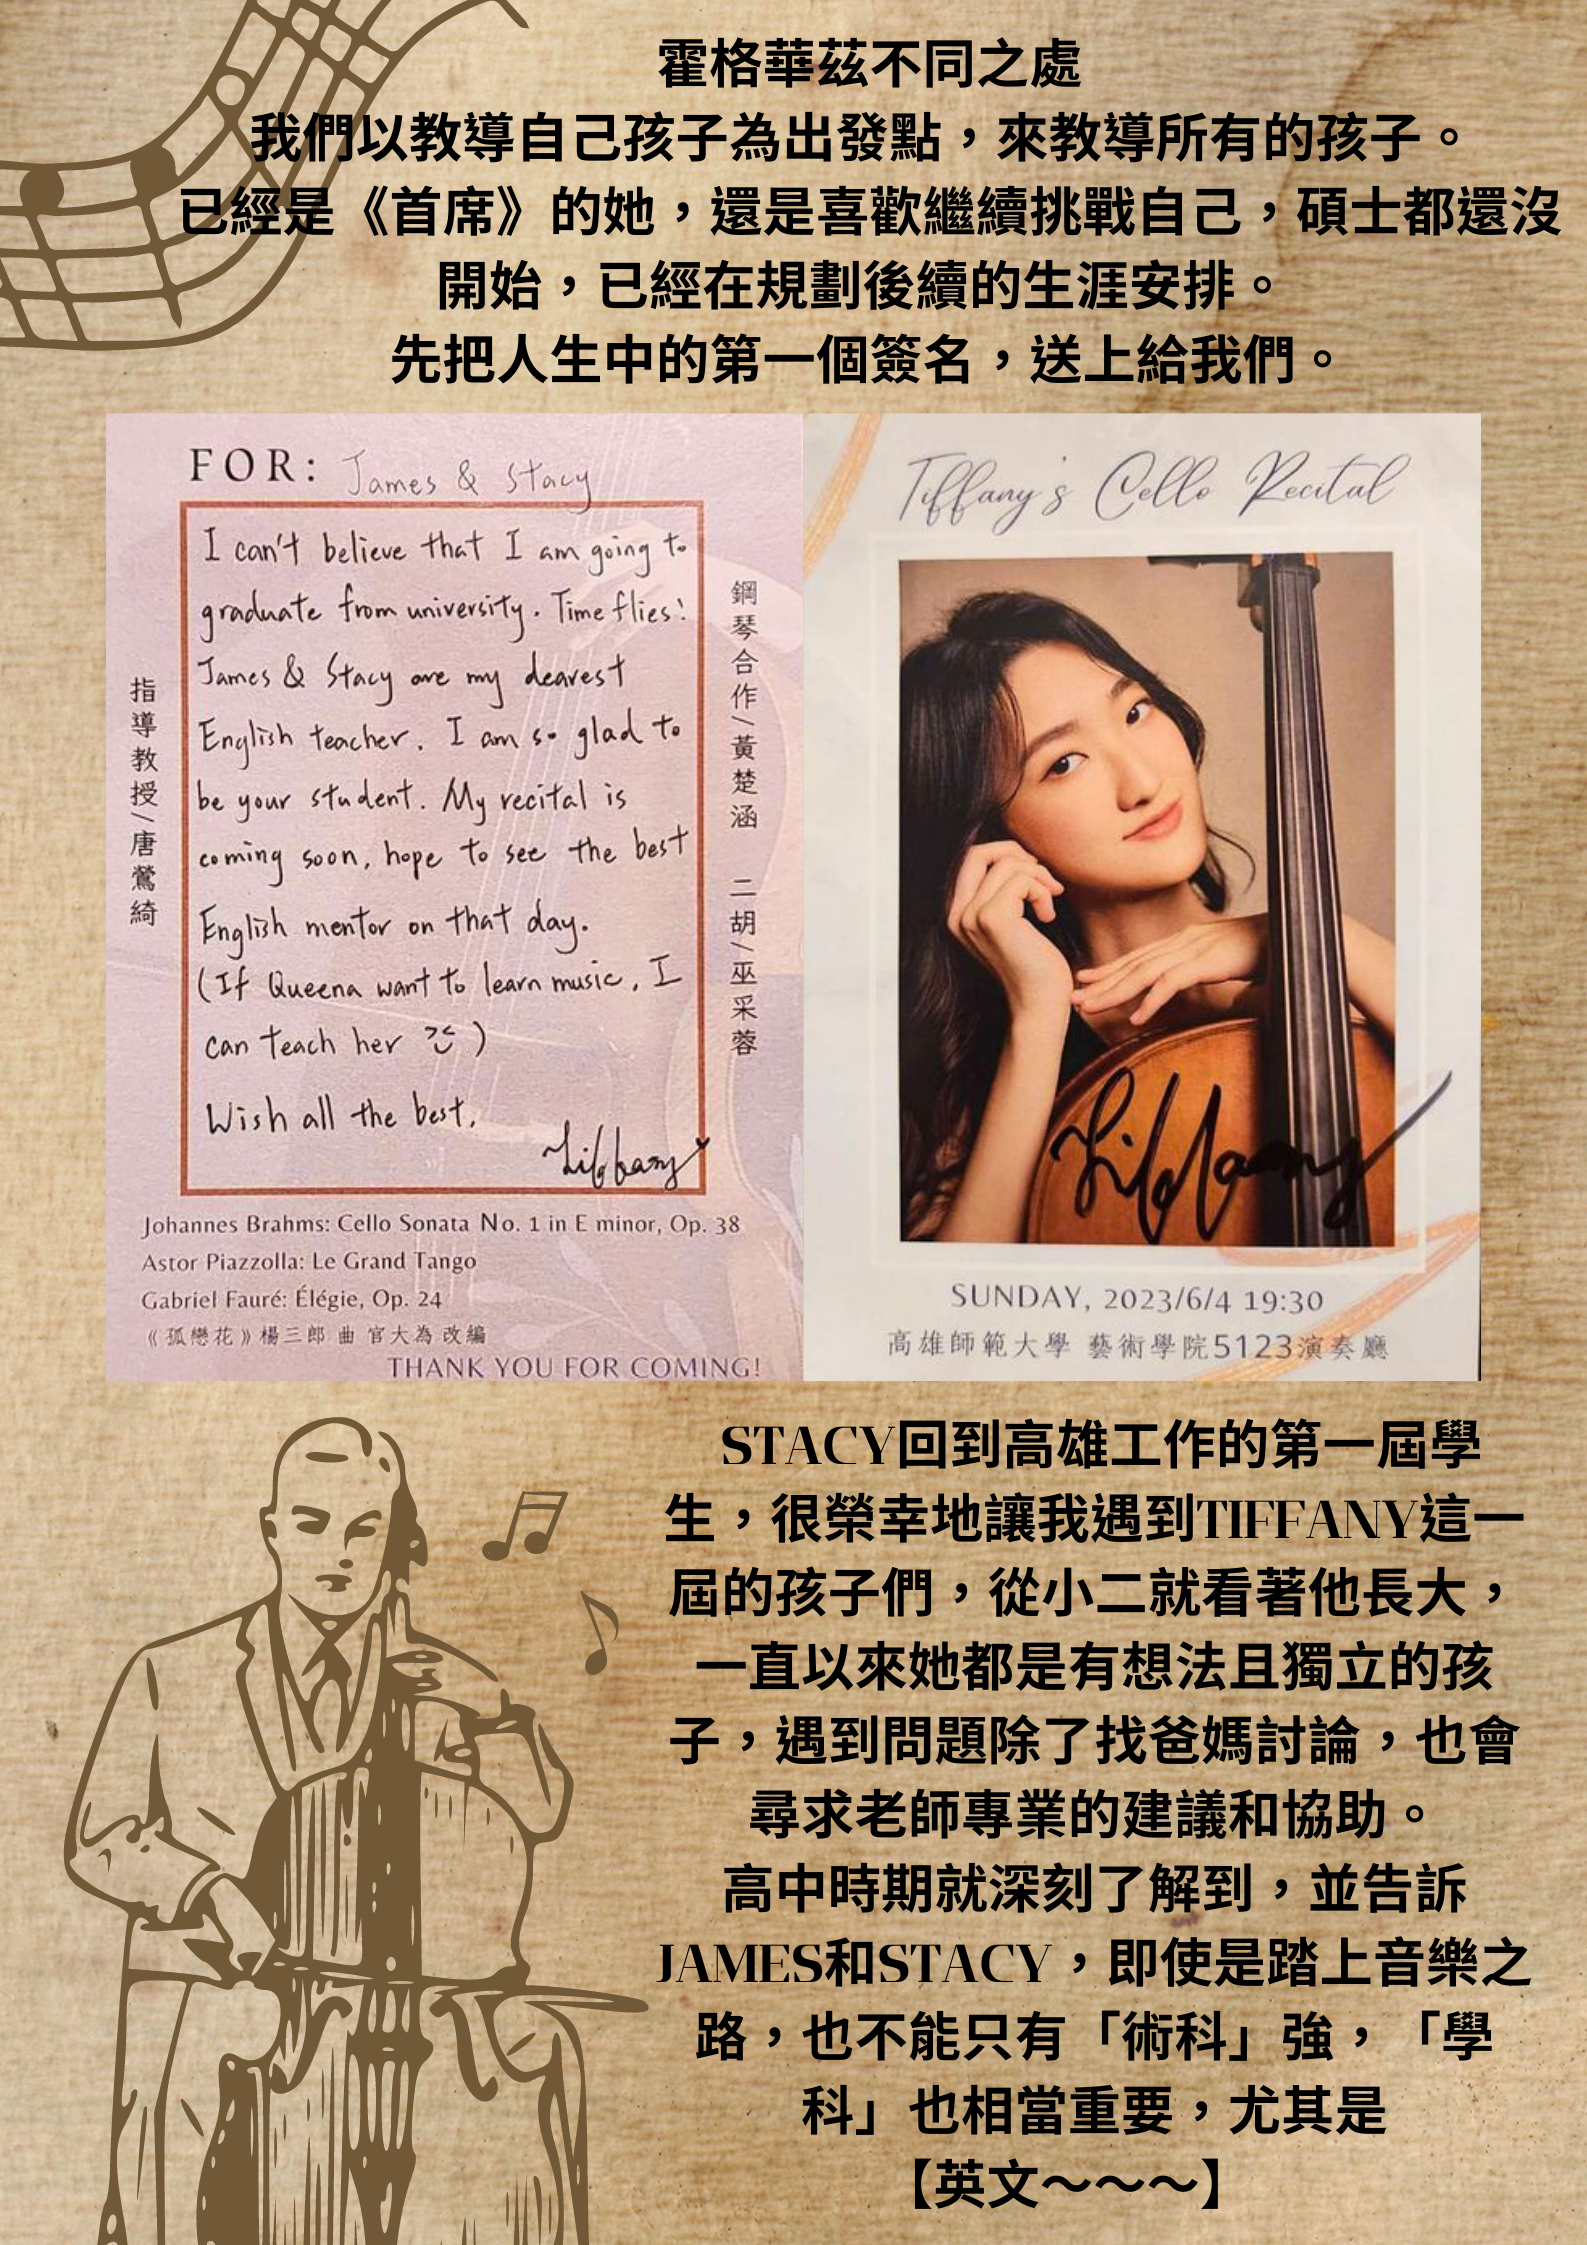 霍格華茲不同之處
我們以教導自己孩子為出發點，來教導所有的孩子。
已經是《首席》的她，還是喜歡繼續挑戰自己，碩士都還沒
開始，已經在規劃後續的生涯安排。
先把人生中的第一個簽名，送上給我們。
FOR: James & Stacy
I can't believe that I am going to
graduate from university. Time flies!
James & Stacy are my dearest
English teacher. I am so glad to
be your student. My recital is
coming soon, hope to see the best
English mentor on that day.
(If Queena want to learn music, I
can teach her )
Wish all the best.
Tiffany
指導教授/唐鶯綺
鋼琴合作/黃楚涵 二胡/巫采蓉
Johannes Brahms: Cello Sonata No. 1 in E minor, Op. 38
Astor Piazzolla: Le Grand Tango
Gabriel Fauré: Élégie, Op. 24
《孤戀花》楊三郎 曲 官大為 改編
THANK YOU FOR COMING!
Tiffany's Cello Recital
Tiffany
SUNDAY, 2023/6/4 19:30
高雄師範大學 藝術學院5123演奏廳
STACY回到高雄工作的第一屆學
生，很榮幸地讓我遇到TIFFANY這一
屆的孩子們，從小二就看著他長大，
一直以來她都是有想法且獨立的孩
子，遇到問題除了找爸媽討論，也會
尋求老師專業的建議和協助。
高中時期就深刻了解到，並告訴
JAMES和STACY，即使是踏上音樂之
路，也不能只有「術科」強，「學
科」也相當重要，尤其是
【英文～～～】